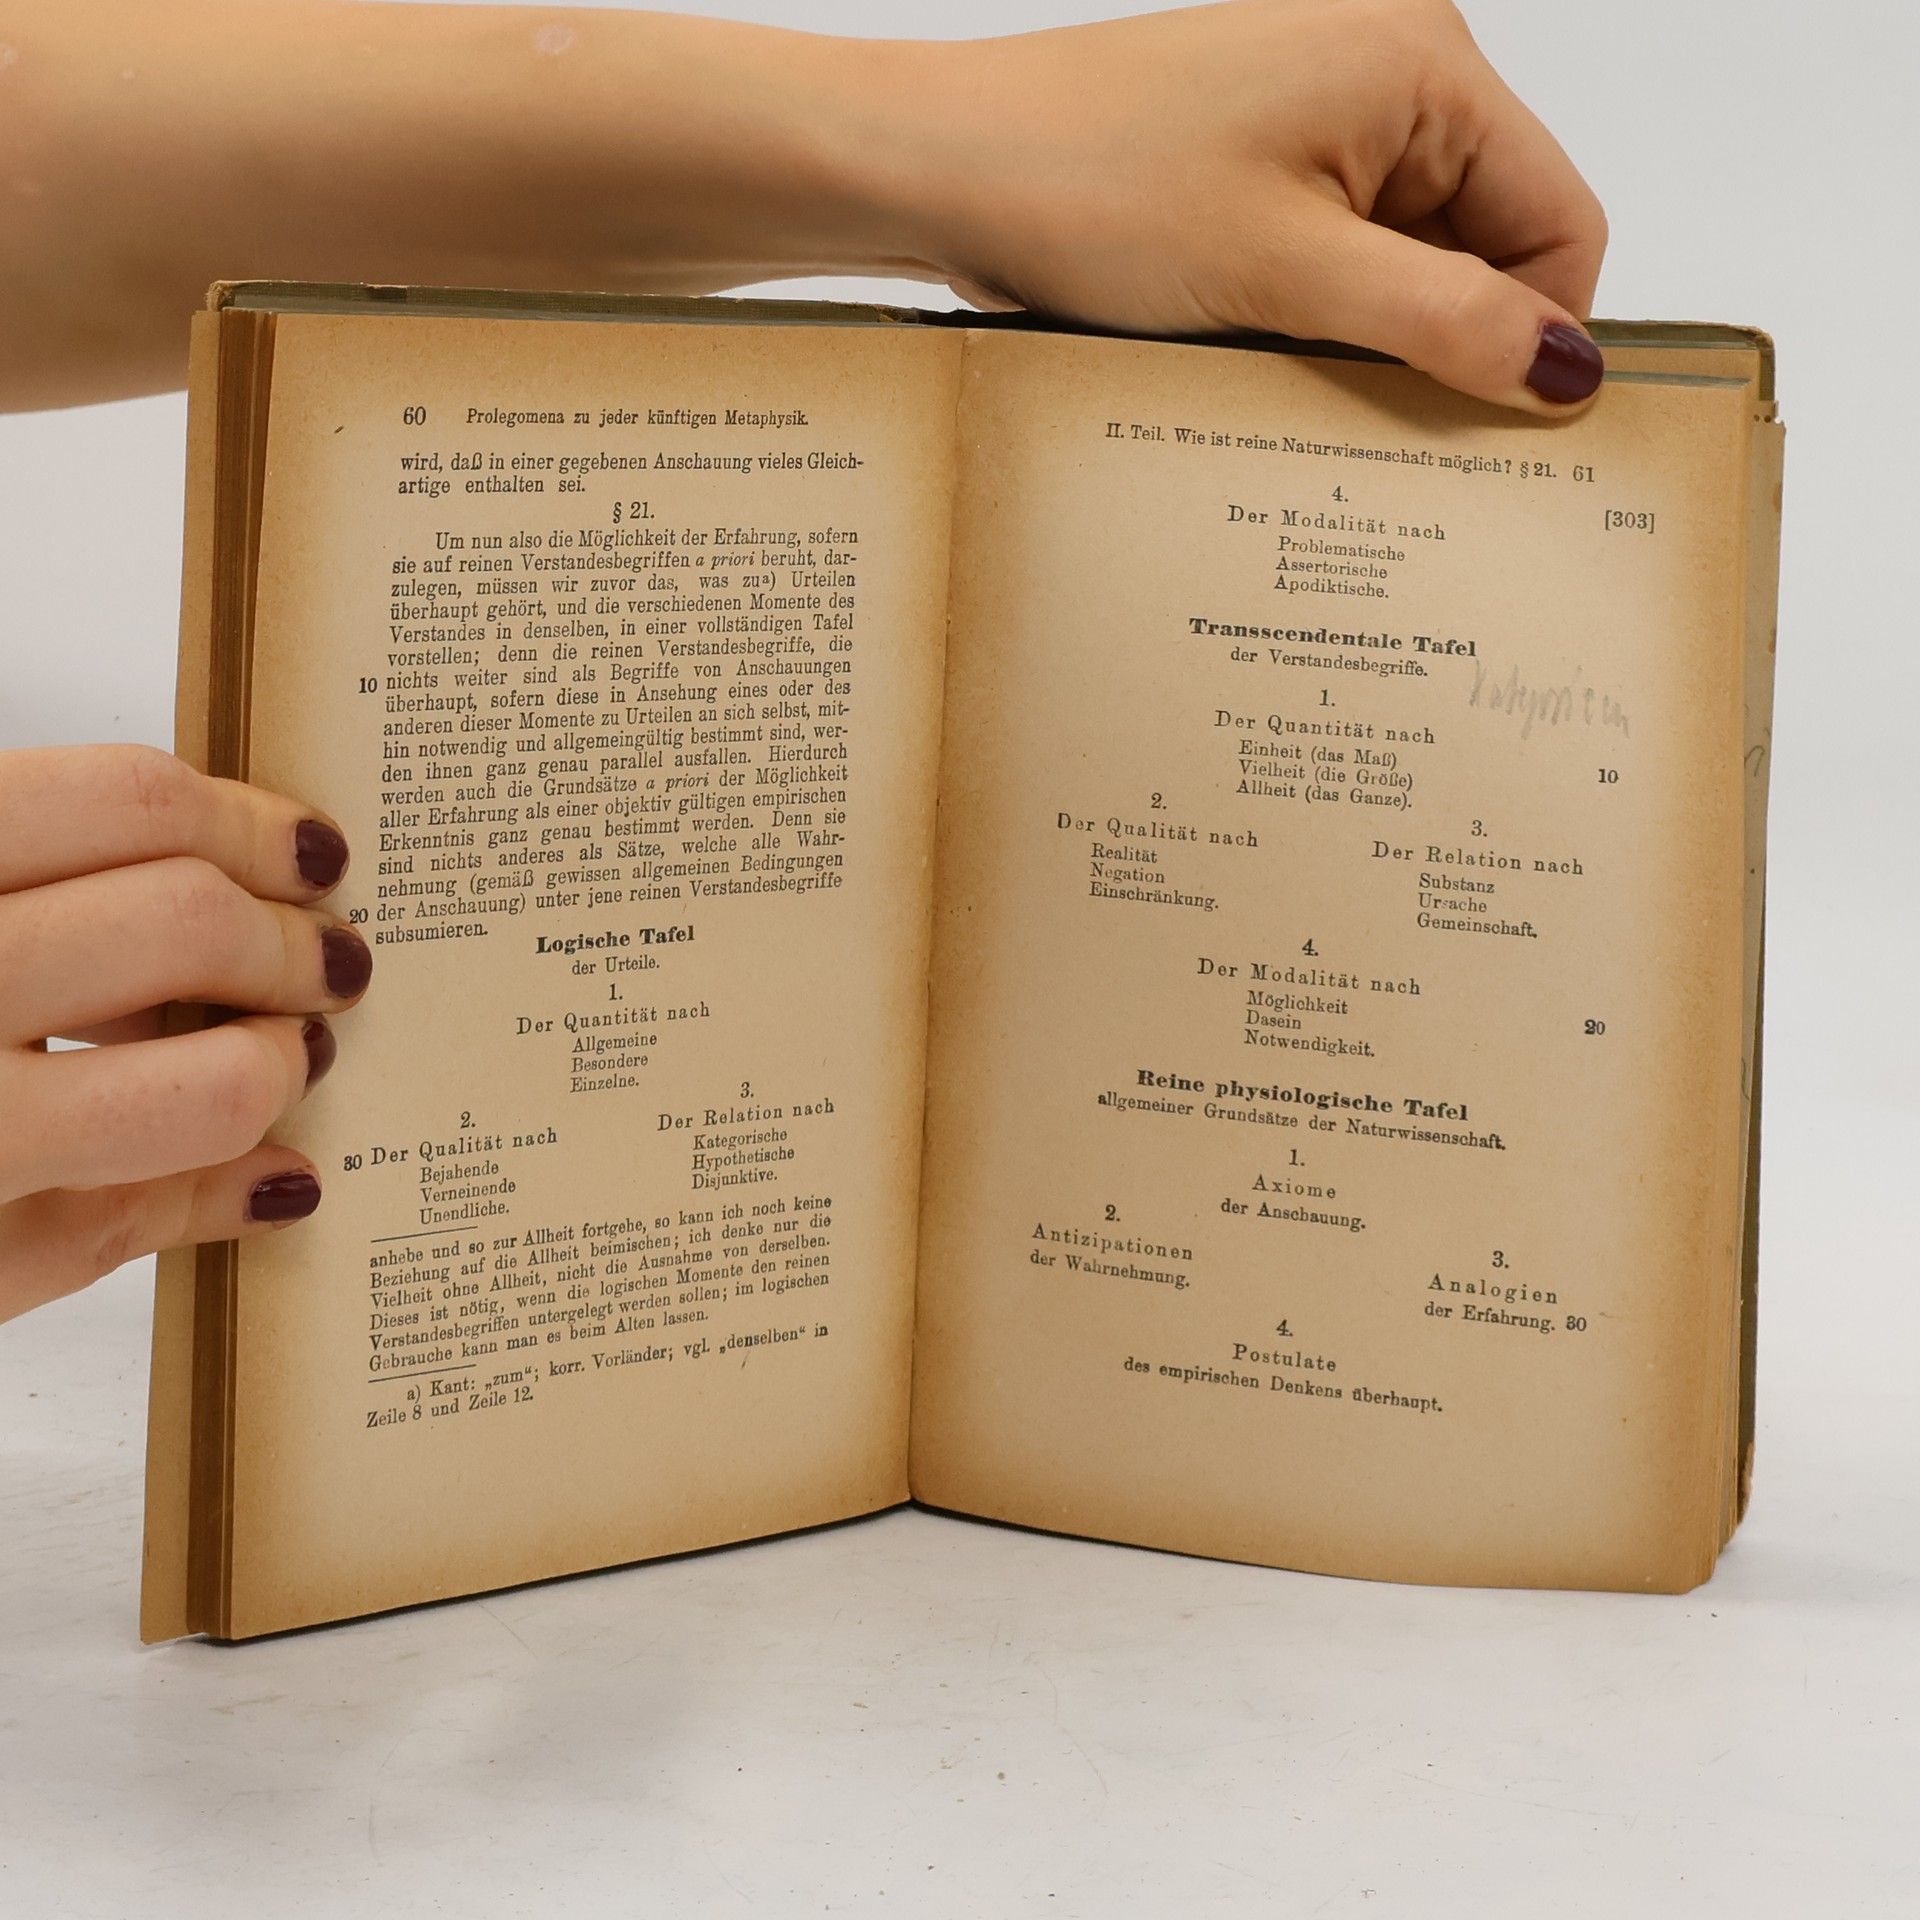 60 Prolegomena zu jeder künftigen Metaphysik.
wird, daß in einer gegebenen Anschauung vieles Gleich-
artige enthalten sei.
§ 21.
Um nun also die Möglichkeit der Erfahrung, sofern
sie auf reinen Verstandesbegriffen a priori beruht, dar-
zulegen, müssen wir zuvor das, was zuᵃ) Urteilen
überhaupt gehört, und die verschiedenen Momente des
Verstandes in denselben, in einer vollständigen Tafel
vorstellen; denn die reinen Verstandesbegriffe, die
10 nichts weiter sind als Begriffe von Anschauungen
überhaupt, sofern diese in Ansehung eines oder des
anderen dieser Momente zu Urteilen an sich selbst, mit-
hin notwendig und allgemeingültig bestimmt sind, wer-
den ihnen ganz genau parallel ausfallen. Hierdurch
werden auch die Grundsätze a priori der Möglichkeit
aller Erfahrung als einer objektiv gültigen empirischen
Erkenntnis ganz genau bestimmt werden. Denn sie
sind nichts anderes als Sätze, welche alle Wahr-
nehmung (gemäß gewissen allgemeinen Bedingungen
20 der Anschauung) unter jene reinen Verstandesbegriffe
subsumieren.
Logische Tafel
der Urteile.
1.
Der Quantität nach
Allgemeine
Besondere
Einzelne.
2.
30 Der Qualität nach
Bejahende
Verneinende
Unendliche.
3.
Der Relation nach
Kategorische
Hypothetische
Disjunktive.
anhebe und so zur Allheit fortgehe, so kann ich noch keine
Beziehung auf die Allheit beimischen; ich denke nur die
Vielheit ohne Allheit, nicht die Ausnahme von derselben.
Dieses ist nötig, wenn die logischen Momente den reinen
Verstandesbegriffen untergelegt werden sollen; im logischen
Gebrauche kann man es beim Alten lassen.
a) Kant: „zum“; korr. Vorländer; vgl. „denselben“ in
Zeile 8 und Zeile 12.
II. Teil. Wie ist reine Naturwissenschaft möglich? § 21. 61
4.
Der Modalität nach [303]
Problematische
Assertorische
Apodiktische.
Transscendentale Tafel
der Verstandesbegriffe.
Kategorien
1.
Der Quantität nach
Einheit (das Maß)
Vielheit (die Größe) 10
Allheit (das Ganze).
2.
Der Qualität nach
Realität
Negation
Einschränkung.
3.
Der Relation nach
Substanz
Ursache
Gemeinschaft.
4.
Der Modalität nach
Möglichkeit
Dasein 20
Notwendigkeit.
Reine physiologische Tafel
allgemeiner Grundsätze der Naturwissenschaft.
1.
Axiome
der Anschauung.
2.
Antizipationen
der Wahrnehmung.
3.
Analogien
der Erfahrung. 30
4.
Postulate
des empirischen Denkens überhaupt.